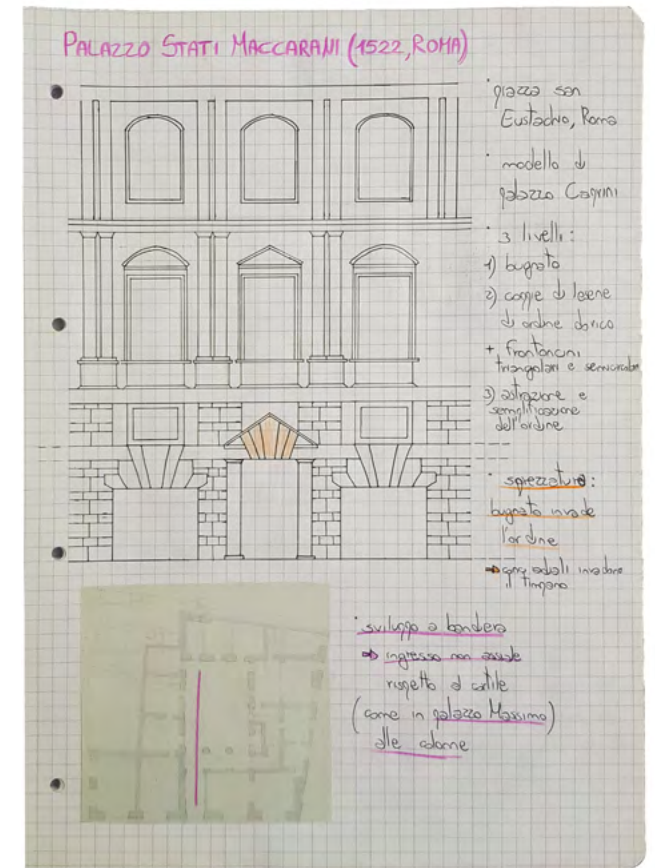 PALAZZO STATI MACCARANI (1522, ROMA)
· piazza san
Eustachio, Roma
· modello di
palazzo Caprini
· 3 livelli:
1) bugnato
2) coppie di lesene
di ordine dorico
+ frontoncini
triangolari e semicircolari
3) astrazione e
semplificazione
dell'ordine
· sprezzatura:
bugnato invade
l'ordine
⇒ conci radiali invadono
il timpano
· sviluppo a bandera
⇒ ingresso non assiale
rispetto al cortile
(come in palazzo Massimo)
alle colonne